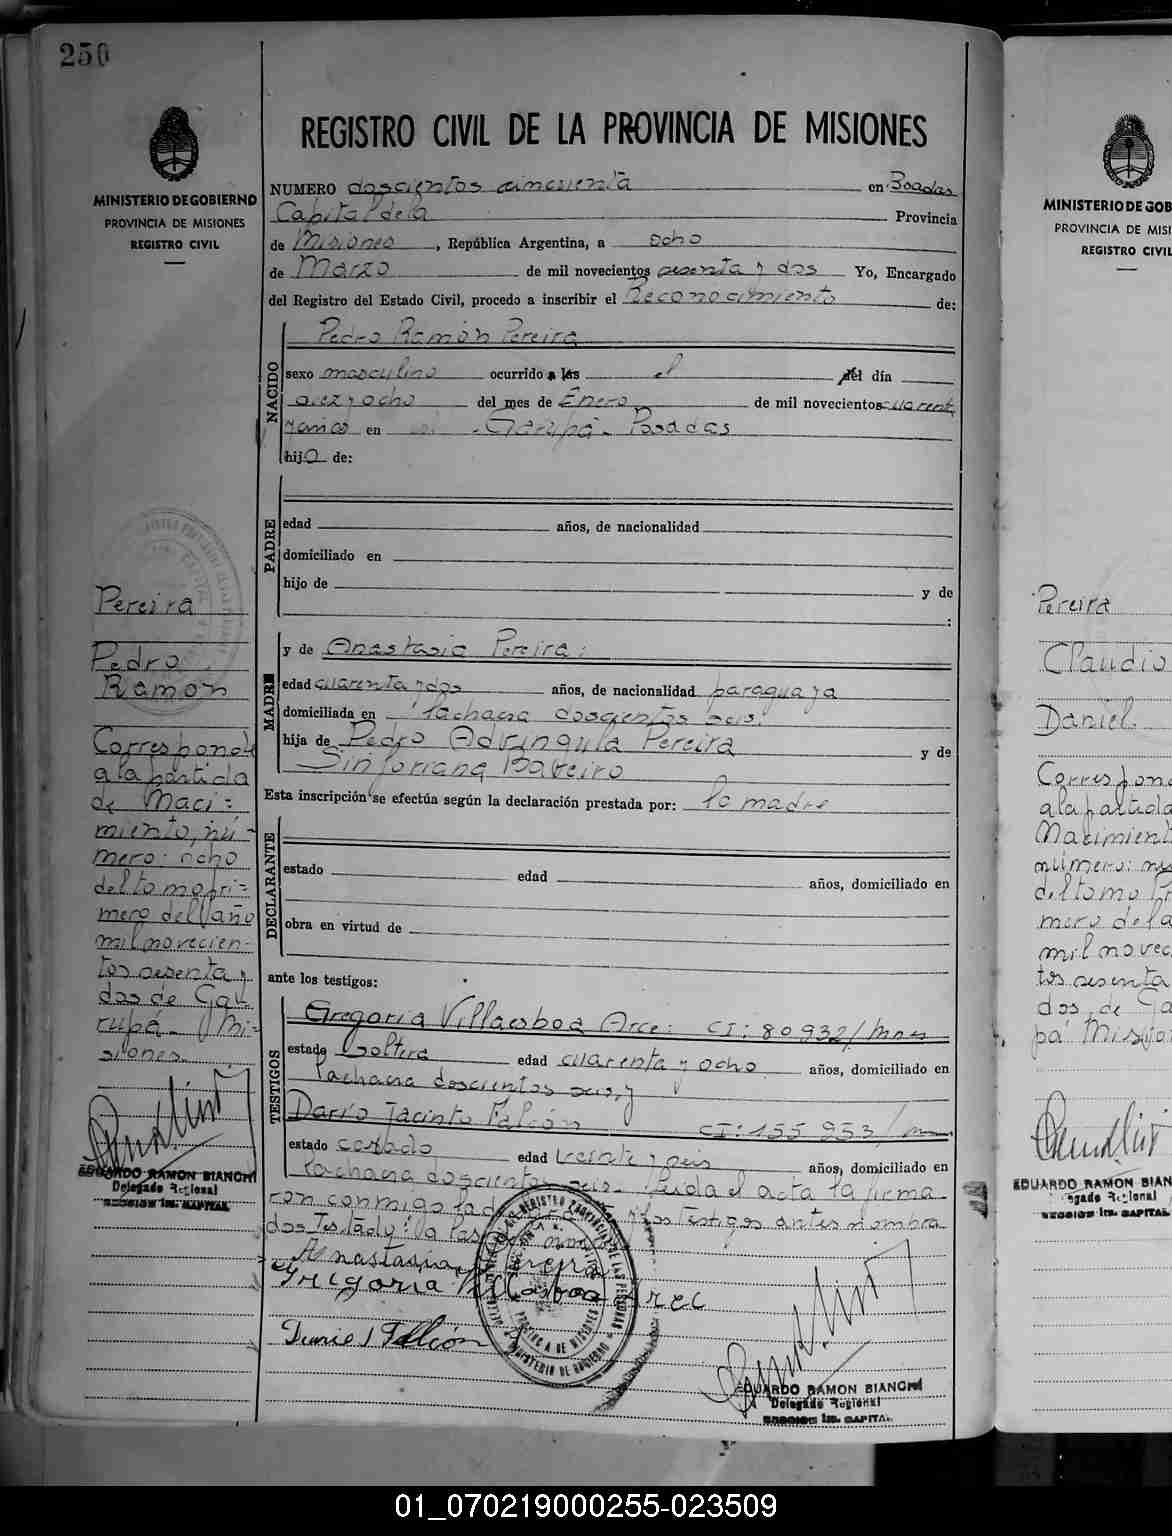 250
MINISTERIO DE GOBIERNO
PROVINCIA DE MISIONES
REGISTRO CIVIL
Pereira
Pedro
Ramon
Corresponde
a la partida
de Naci=
miento, nú-
mero: ocho
del tomo pri=
mero del año
mil novecien-
tos sesenta y
dos de Ga-
rupá - Mi=
siones.
EDUARDO RAMON BIANCHI
Delegado Regional
SECCION 1ra. CAPITAL
REGISTRO CIVIL DE LA PROVINCIA DE MISIONES
NUMERO doscientos cincuenta en Posadas
Capital de la Provincia
de Misiones, República Argentina, a ocho
de Marzo de mil novecientos sesenta y dos Yo, Encargado
del Registro del Estado Civil, procedo a inscribir el Reconocimiento de:
NACIDO
Pedro Ramón Pereira
sexo masculino ocurrido a las el del día
diez y ocho del mes de Enero de mil novecientos cuarenta
y cinco en Garupá - Posadas
hijo de:
PADRE
edad años, de nacionalidad
domiciliado en
hijo de y de
:
MADRE
y de Anastasia Pereira:
edad cuarenta y dos años, de nacionalidad paraguaya
domiciliada en Lachana doscientos seis.
hija de Pedro Pereira y de
Sinforiana Bareiro
Esta inscripción se efectúa según la declaración prestada por: la madre
DECLARANTE
estado edad años, domiciliado en
obra en virtud de
ante los testigos:
TESTIGOS
Gregoria Villasboa Arce: CI: 80932/Mnes
estado soltera edad cuarenta y ocho años, domiciliado en
Lachana doscientos seis, y
Darío Jacinto Falcón CI: 155 953/
estado casado edad veinte y seis años, domiciliado en
Lachana doscientos seis. Leída el acta la firma
ron conmigo la y los testigos antes nombra
dos
Anastasia Pereira
Gregoria Villasboa Arce
Falcón
EDUARDO RAMON BIANCHI
Delegado Regional
SECCION 1ra. CAPITAL
MINISTERIO DE GOB
PROVINCIA DE MISI
REGISTRO CIVIL
Pereira
Claudio
Daniel
Correspond
a la partida
Nacimient
número:
del tomo Pr
mero del a
mil novec
tos sesenta
dos, de Ga
pá Mision
EDUARDO RAMON BIAN
egado Regional
SECCION 1ra. CAPITAL
01_070219000255-023509